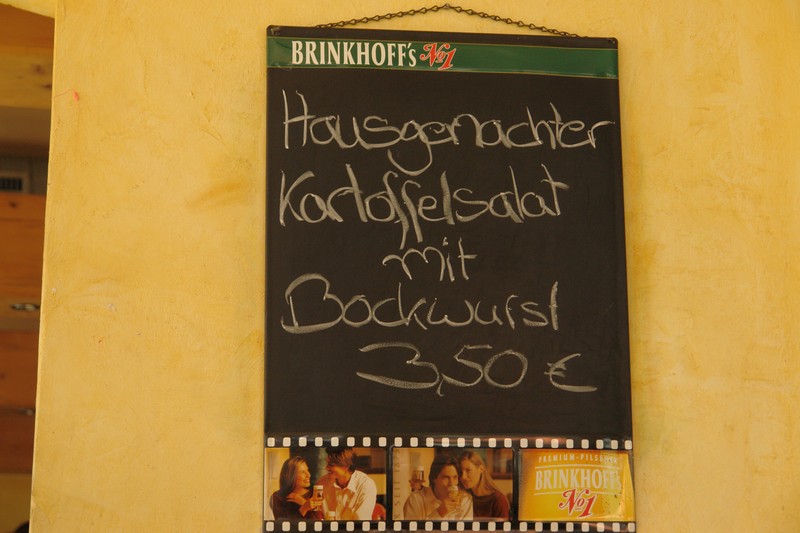 BRINKHOFF's No1
Hausgemachter
Kartoffelsalat
mit
Bockwurst
3,50 €
PREMIUM-PILSENER
BRINKHOFF's
No1